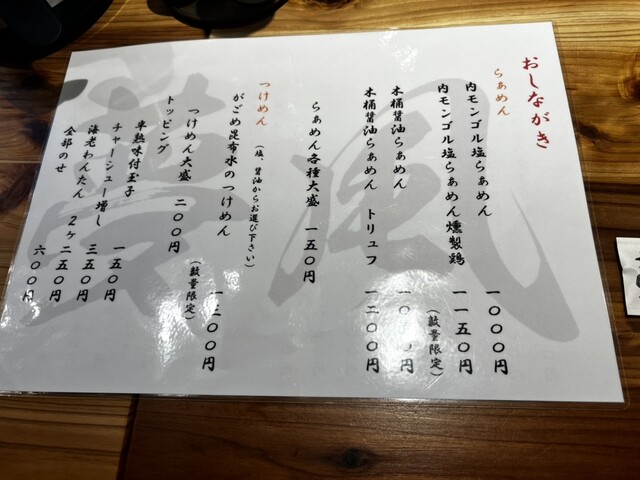 おしながき
らぁめん
内モンゴル塩らぁめん 一〇〇〇円
内モンゴル塩らぁめん燻製鶏 一一五〇円
(数量限定)
木桶醤油らぁめん 一〇〇〇円
木桶醤油らぁめん トリュフ 一二〇〇円
らぁめん各種大盛 一五〇円
つけめん
(塩、醤油からお選び下さい)
がごめ昆布水のつけめん 一三〇〇円
(数量限定)
つけめん大盛 二〇〇円
トッピング
半熟味付玉子 一五〇円
チャーシュー増し 三五〇円
海老わんたん 2ヶ 二五〇円
全部のせ 六〇〇円
夢風